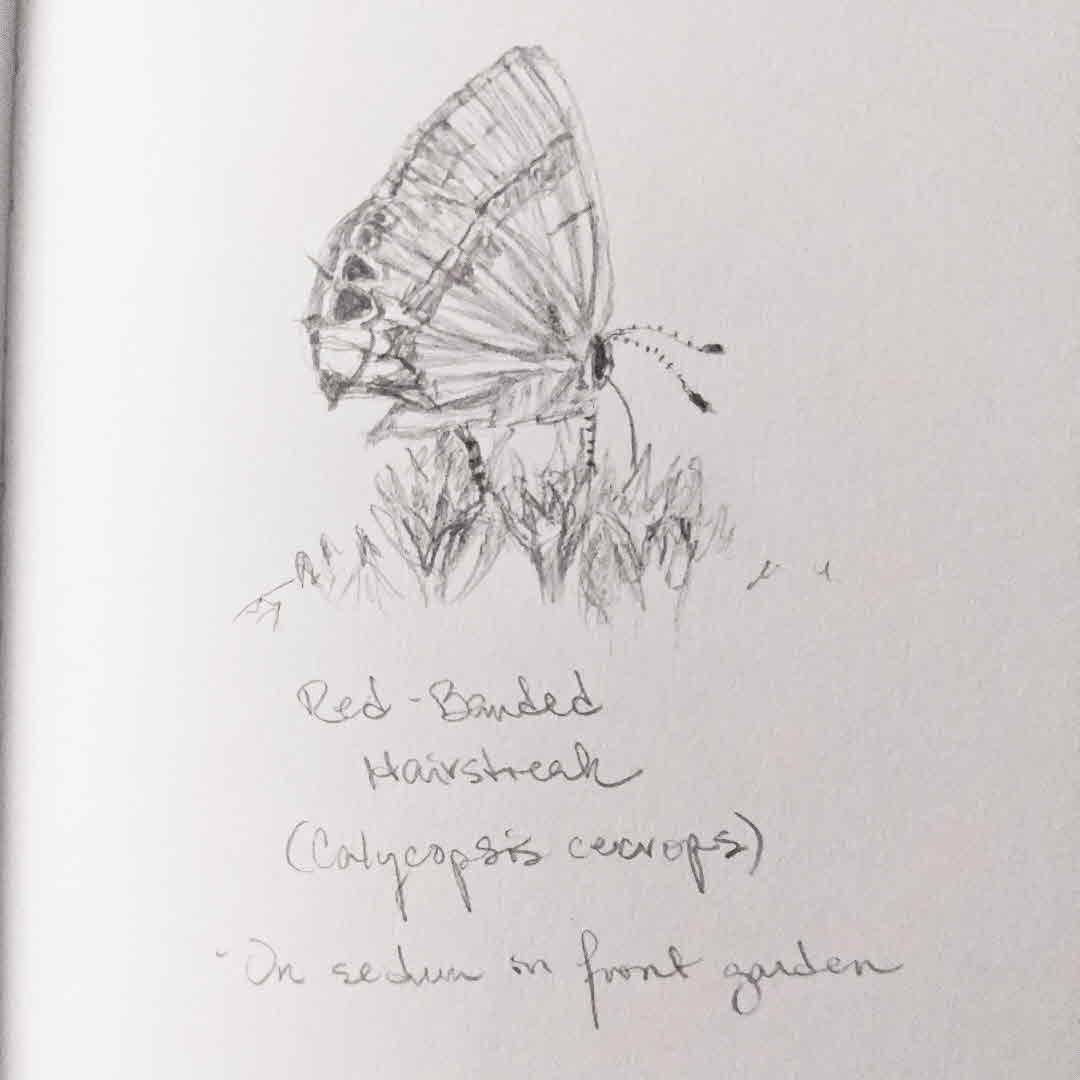 Red-Banded
Hairstreak
(Calycopsis cecrops)
-On sedum in front garden